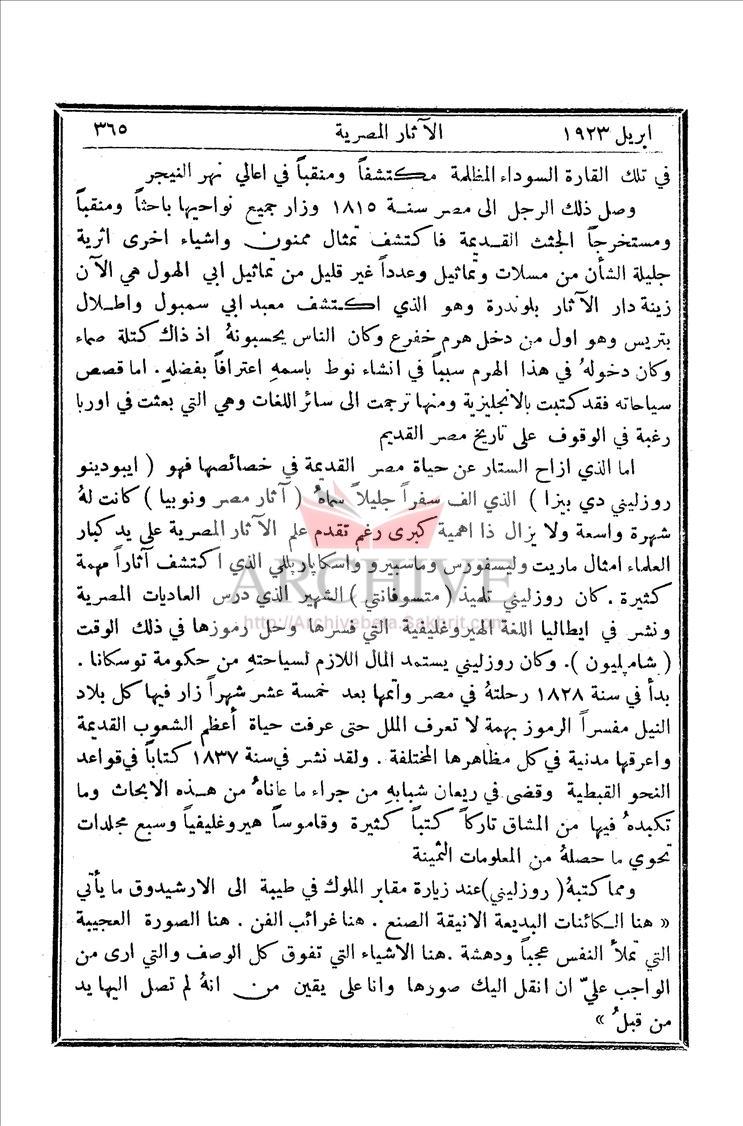 ابريل ١٩٢٣ الآثار المصرية ٣٦٥
في تلك القارة السوداء المظلمة مكتشفاً ومنقباً في اعالي نهر النيجر
وصل ذلك الرجل الى مصر سنة ١٨١٥ وزار جميع نواحيها باحثاً ومنقباً
ومستخرجاً الجثث القديمة فاكتشف تمثال ممنون واشياء اخرى اثرية
جليلة الشأن من مسلات وتماثيل وعدداً غير قليل من تماثيل ابي الهول هي الآن
زينة دار الآثار بلوندرة وهو الذي اكتشف معبد ابي سمبول واطلال
بتريس وهو اول من دخل هرم خفرع وكان الناس يحسبونهُ اذ ذاك كتلة صماء
وكان دخولهُ في هذا الهرم سبباً في انشاء نوط باسمهِ اعترافاً بفضلهِ. اما قصص
سياحاته فقد كتبت بالانجليزية ومنها ترجمت الى سائر اللغات وهي التي بعثت في اوربا
رغبة في الوقوف على تاريخ مصر القديم
اما الذي ازاح الستار عن حياة مصر القديمة في خصائصها فهو ( ايبودينو
روزليني دي بيزا ) الذي الف سفراً جليلاً سماهُ ( آثار مصر ونوبيا ) كانت لهُ
شهرة واسعة ولا يزال ذا اهمية كبرى رغم تقدم علم الآثار المصرية على يد كبار
العلماء امثال ماريت وليسفورس وماسبيرو واسكاپارپللي الذي اكتشف آثاراً مهمة
كثيرة . كان روزليني تلميذ ( متسوفانتي ) الشهير الذي درس العاديات المصرية
ونشر في ايطاليا اللغة الهيروغليفية التي فسرها وحل رموزها في ذلك الوقت
( شامليون ). وكان روزليني يستمد المال اللازم لسياحتهِ من حكومة توسكانا .
بدأ في سنة ١٨٢٨ رحلتهُ في مصر واتمها بعد خمسة عشر شهراً زار فيها كل بلاد
النيل مفسراً الرموز بهمة لا تعرف الملل حتى عرفت حياة أعظم الشعوب القديمة
واعرقها مدنية في كل مظاهرها المختلفة . ولقد نشر في سنة ١٨٣٧ كتاباً في قواعد
النحو القبطية وقضى في ريعان شبابهِ من جراء ما عاناهُ من هذه الابحاث وما
تكبدهُ فيها من المشاق تاركاً كتباً كثيرة وقاموساً هيروغليفياً وسبع مجلدات
تحوي ما حصلهُ من المعلومات الثمينة
ومما كتبهُ ( روزليني ) عند زيارة مقابر الملوك في طيبة الى الارشيدوق ما يأتي
« هنا الكائنات البديعة الانيقة الصنع . هنا غرائب الفن . هنا الصورة العجيبة
التي تملأ النفس عجباً ودهشة . هنا الاشياء التي تفوق كل الوصف والتي ارى من
الواجب عليّ ان انقل اليك صورها وانا على يقين من انهُ لم تصل اليها يد
من قبلُ »
ARCHIVE
http://Archivebeta.Sakhrit.com